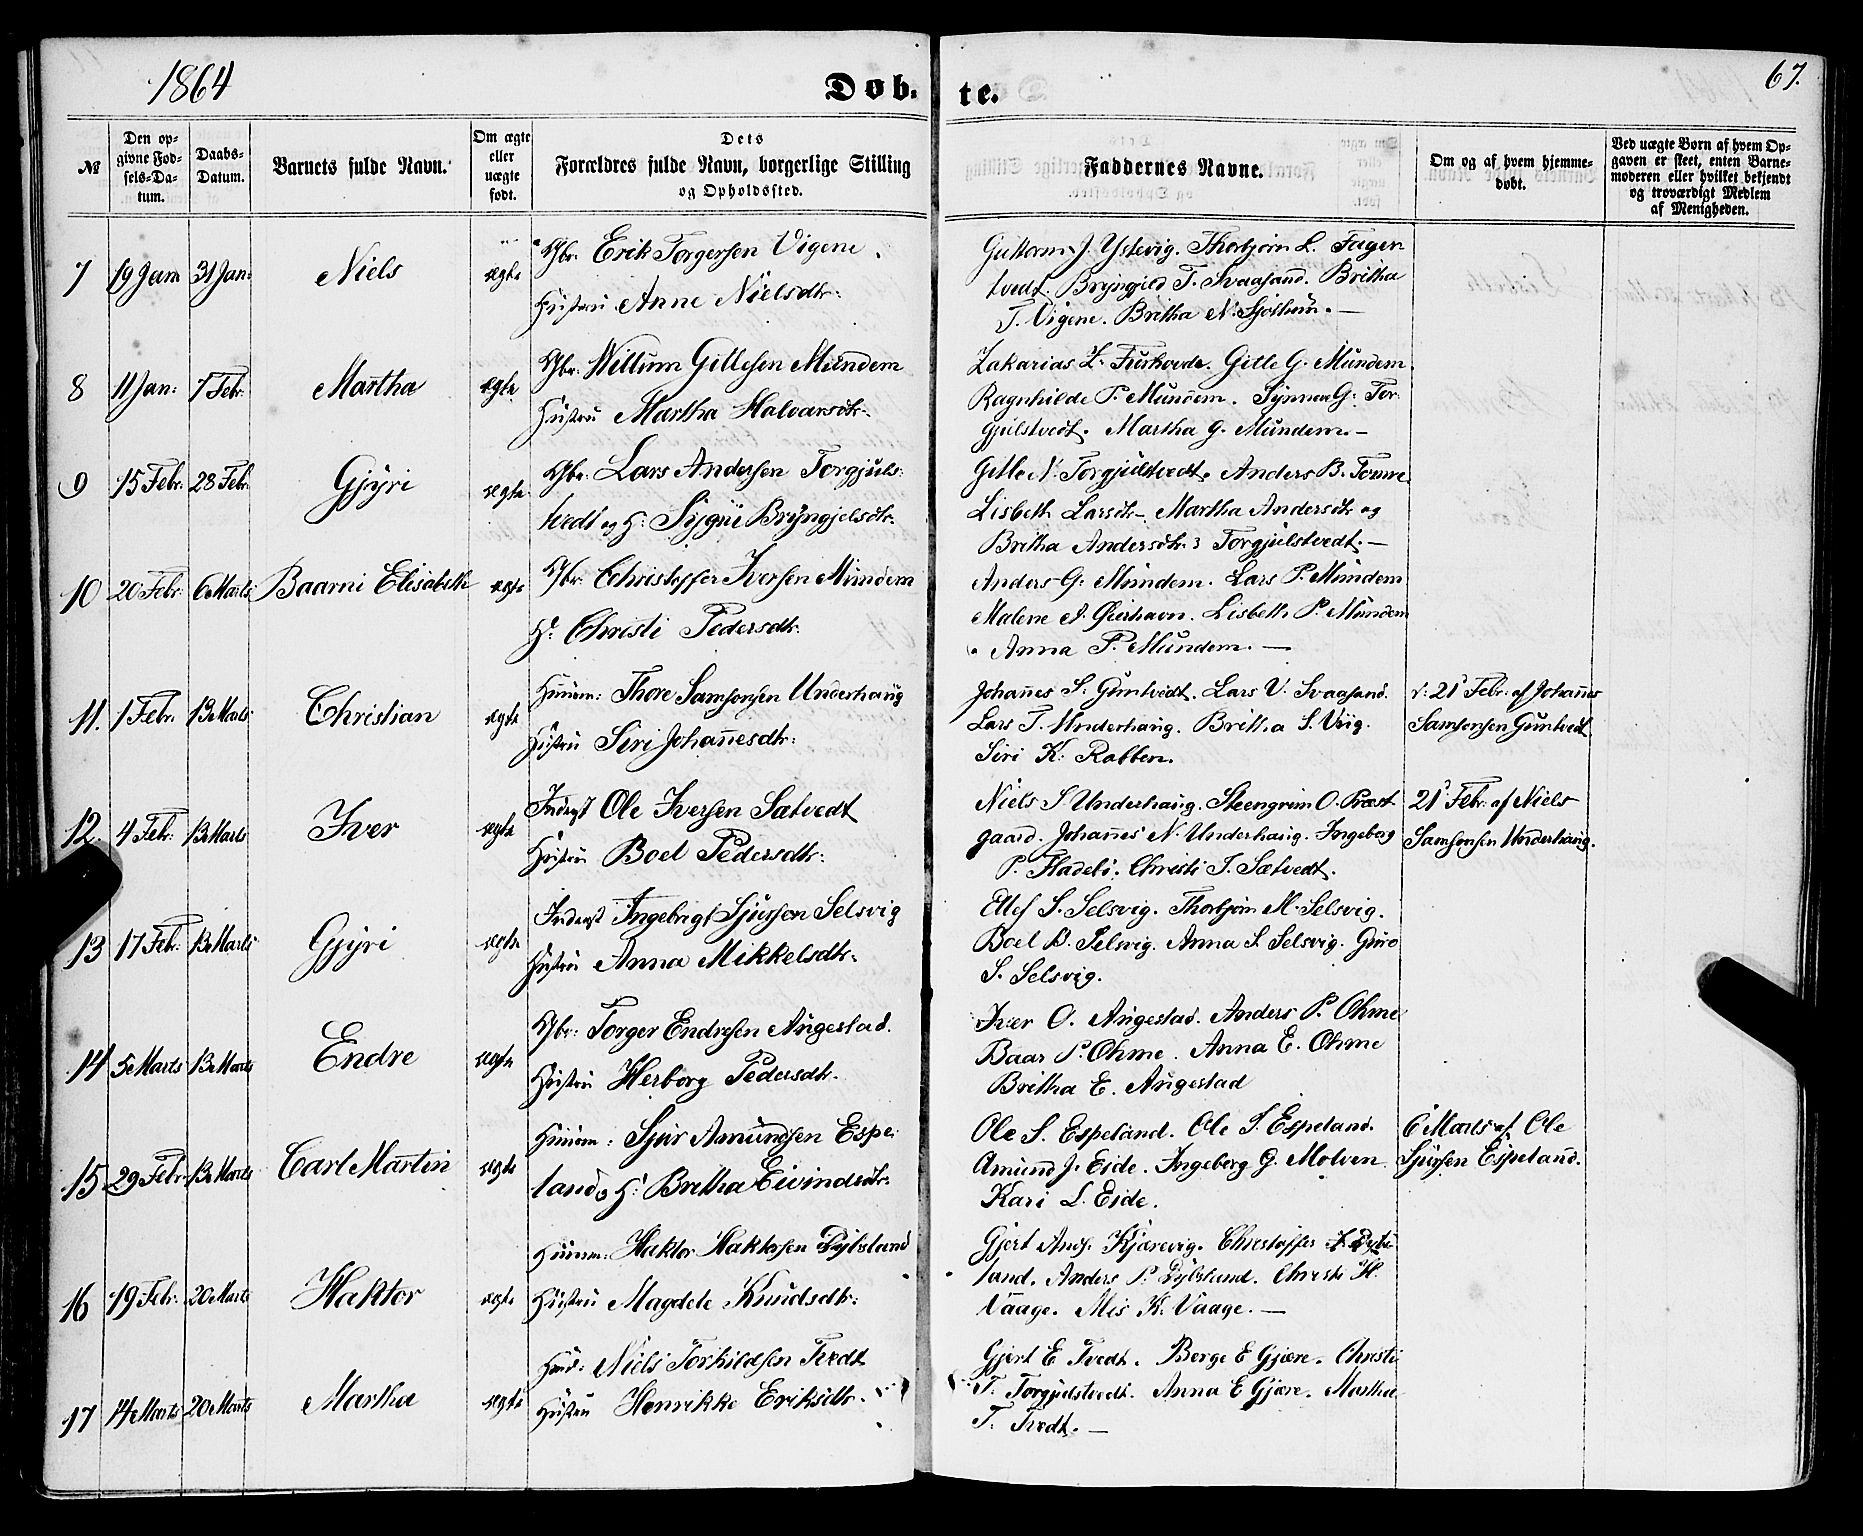 1864
Døb-
te.
67.
№
Den op-
givne Fød-
sels-Da-
tum.
Daabs-
Datum.
Barnets fulde Navn.
Om ægte
eller
uægte
født.
Dets
Forældres fulde Navn, borgerlige Stilling
og Opholdssted.
Faddernes Navne.
Om og af hvem hjemme-
døbt.
Ved uægte Børn af hvem Op-
gaven er skeet, enten Barne-
moderen eller hvilket bekjendt
og troværdigt Medlem
af Menigheden.
7 19 Janr 31 Jan: Niels ægte Gbr. Erik Torgersen Vigene
Hustru Anne Nielsdtr:
Guttorm J. Ystevig. Thorbjørn L. Fagen
tvedt. Bryngjeld T. Svaasand. Britha
T. Vigene. Britha N. Sjøthun. —
8 11 Jan: 7 Febr. Martha ægte Gbr. Willum Gillesen Mundem
Hustru Martha Halvarsdtr.
Zakarias L. Furhovde. Gitle G. Mundem.
Ragnhilde P. Mundem. Synneva G. Tor-
gjulstvedt. Martha G. Mundem. —
9 15 Febr. 28 Febr. Gjyri ægte Gbr. Lars Andersen Torgjuls-
tvedt og H: Sygni Bryngjelsdtr.
Gitle N. Torgjulstvedt. Anders B. Tomre
Lisbeth Larsdtr. Martha Andersdtr og
Britha Andersdtr. Torgjulstvedt. —
10 20 Febr. 6 Marts Baarni Elisabeth ægte Gbr. Christopher Iversen Mundem
H: Christi Pedersdtr.
Anders G. Mundem. Lars P. Mundem
Malene A. Gjerhavn. Lisbeth P. Mundem
Anna P. Mundem. —
11. 1 Febr. 13 Marts Christian ægte Huusm: Thore Samsonsen Underhaug
Hustru Siri Johannesdtr:
Johannes S. Guntvedt. Lars V. Svaasand.
Lars T. Underhaug. Britha S. Viig.
Siri K. Rabben.
d: 21 Febr. af Johannes
Samsonsen Guntvedt
12. 4 Febr. 13 Marts Iver ægte Inderst Ole Iversen Sætvedt
Hustru Boel Pedersdtr:
Niels S. Underhaug. Steengrim O. Præst-
gaard. Johannes N. Underhaug. Ingeborg
P. Fladebø. Christi I. Sætvedt.
21 Febr. af Niels
Samsonsen Underhaug.
13 17 Febr. 13 Marts Gjyri ægte Inderst Ingebrigt Sjursen Selsvig
Hustru Anna Mikkelsdtr.
Ellef S. Selsvig. Thorbjørn M. Selsvig.
Boel B. Selsvig. Anna S. Selsvig. Guro
S. Selsvig.
14 5 Marts 13 Marts Endre ægte Gbr. Torger Endresen Augestad.
Hustru Herborg Pedersdtr.
Iver O. Augestad. Anders P. Ohme
Baar P. Ohme. Anna E. Ohme
Britha E. Augestad
15 29 Febr. 13 Marts Carl Martin ægte Huusm: Sjur Amundsen Espe-
land og H: Britha Eivindsdtr.
Ole S. Espeland. Ole S. Espeland.
Amund J. Eide. Ingeborg G. Molven.
Kari L. Eide.
6 Marts af Ole
Sjursen Espeland.
16 19 Febr. 20 Marts Haktor ægte Huusm: Haktor Haktorsen Dybsland
Hustru Magdele Knudsdtr:
Gjert Ands. Kjærevig. Christoffer Dybs-
land. Anders P. Dybsland. Christi H.
Vaage. Mis K. Vaage. —
17 14 Marts 20 Marts Martha ægte Huus: Niels Torkildsen Tvedt
Hustru Henrikke Eriksdtr.
Gjert E Tvedt. Berge E Gjære. Christi
T. Torgjulstvedt. Anna E Gjære. Martha
T. Tvedt. —